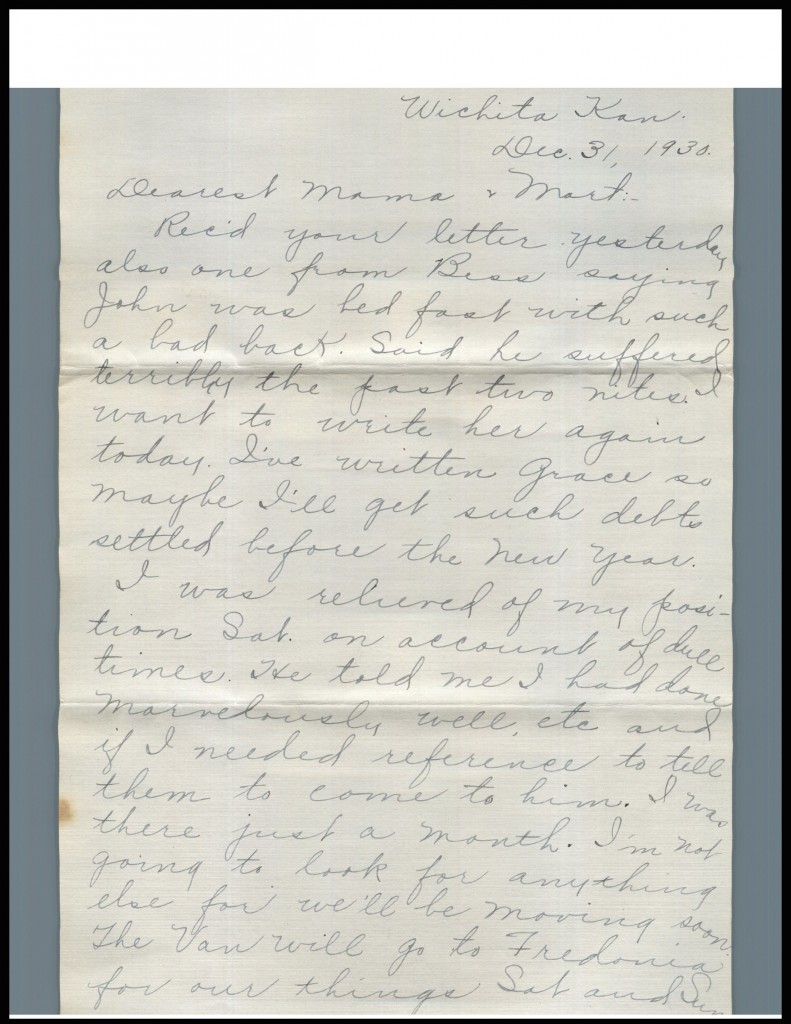 Wichita Kan.
Dec. 31, 1930.
Dearest Mama & Mart:-
Rec'd your letter yesterday
also one from Bess saying
John was bed fast with such
a bad back. Said he suffered
terribly the past two nites. I
want to write her again
today. I've written Grace so
maybe I'll get such debts
settled before the New Year.
I was relieved of my posi-
tion Sat. on account of dull
times. He told me I had done
marvelously well, etc and
if I needed reference to tell
them to come to him. I was
there just a month. I'm not
going to look for anything
else for we'll be moving soon.
The Van will go to Fredonia
for our things Sat and Sun